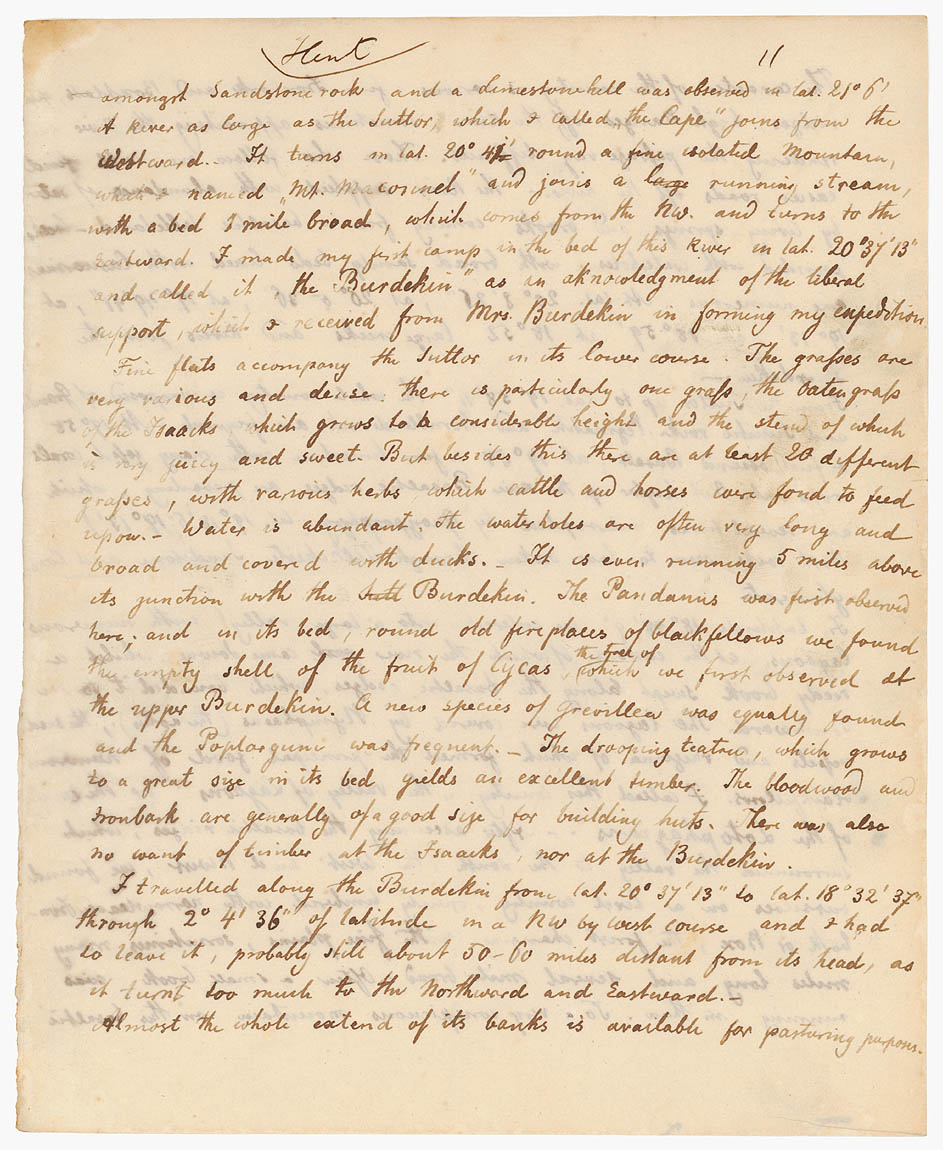 Hent 11
amongst Sandstone rock and a limestonehill was observed in lat. 21° 6'
A river as large as the Suttor, which I called „the Cape" joins from the
Westward.- It turns in lat. 20° 41' round a fine isolated Mountain,
which I named „Mt. Macconnel" and joins a large running stream,
with a bed 1 mile broad, which comes from the NW. and turns to the
Eastward. I made my first camp in the bed of this River in lat. 20°37'13"
and called it „the Burdekin" as an aknowledgment of the liberal
support, which I received from Mrs. Burdekin in forming my expedition.
Fine flats accompany the Suttor in its lower course. The grasses are
very various and dense: there is particularly one grass, the Oatengrass
of the Isaacks, which grows to a considerable height and the stend of which
is very juicy and sweet. But besides this there are at least 20 different
grasses, with various herbs, which cattle and horses were fond to feed
upow.- Water is abundant. The waterholes are often very long and
broad and covered with ducks.- It is even running 5 miles above
its junction with the Sutt Burdekin. The Pandanus was first observed
here; and in its bed, round old fireplaces of blackfellows we found
the empty shell of the fruit of Cycas, the tree of which we first observed at
the upper Burdekin. A new species of Grevillea was equally found
and the Poplargum was frequent.- The drooping teatree, which grows
to a great size in its bed yields an excellent timber. The bloodwood and
Ironbark are generally of a good size for building huts. There was also
no want of timber at the Isaacks, nor at the Burdekin.
I travelled along the Burdekin from lat. 20° 37' 13" to lat. 18° 32' 37"
through 2° 4' 36" of latitude in a NW by west course and I had
to leave it, probably still about 50-60 miles distant from its head, as
it turnt too much to the Northward and Eastward.-
Almost the whole extend of its banks is available for pasturing purposes.